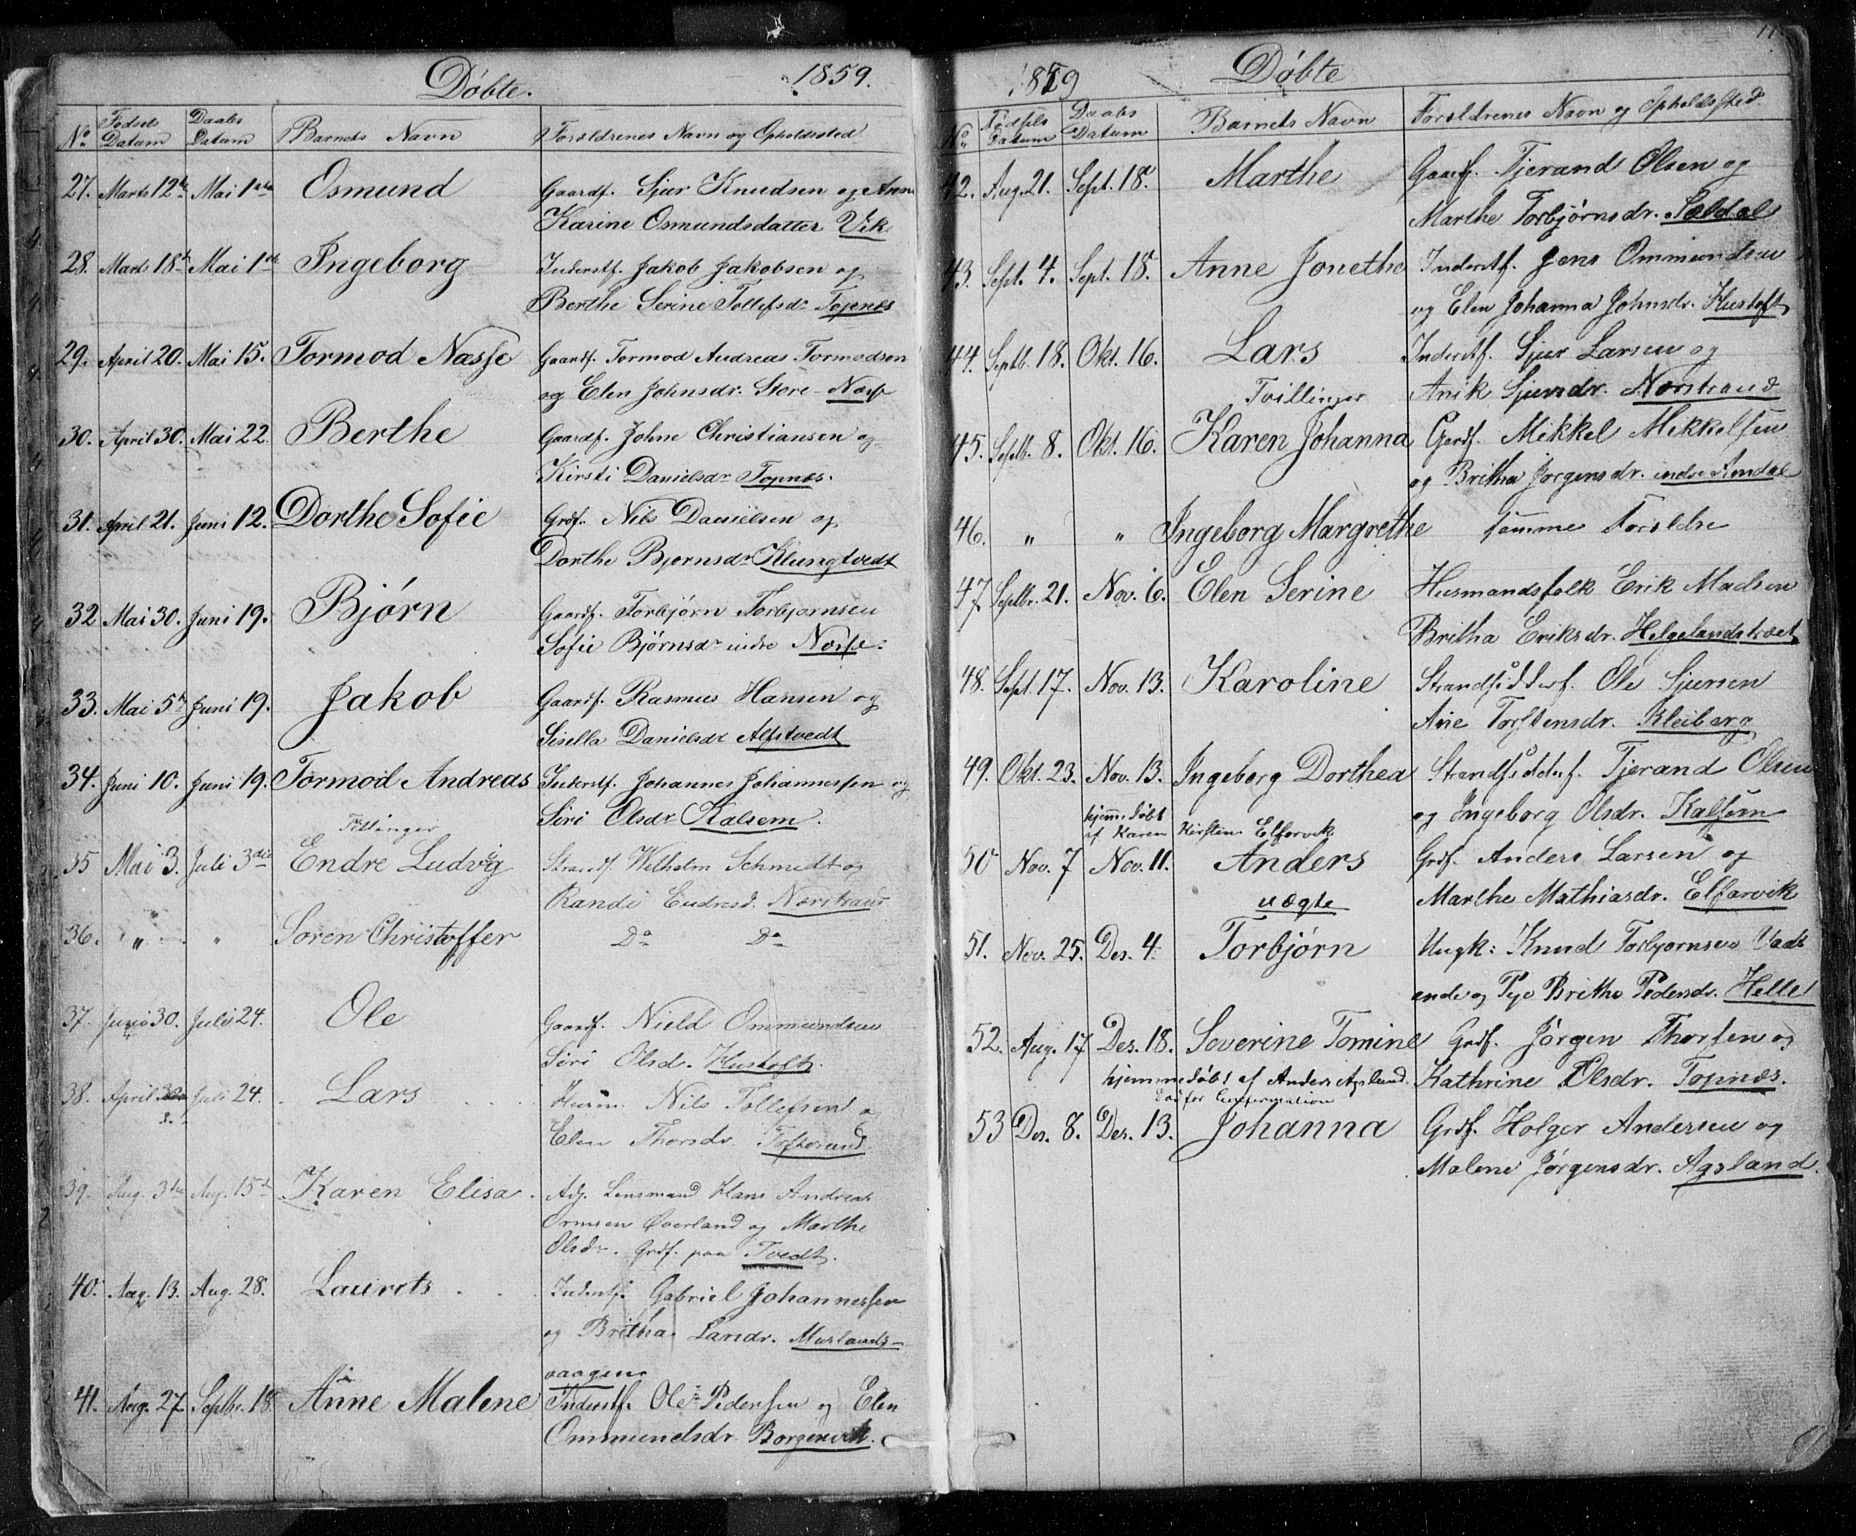 Døbte. 1859.
No Fødsels Datum Daabs Datum Barnets Navn Forældrenes Navn og Opholdssted
27. Marts 12te Mai 1ste Osmund Gaardf. Sjur Knudsen og Anne
Karine Osmundsdatter Vik
28. Marts 18de Mai 1ste Ingeborg Inderstf. Jakob Jakobsen og
Berthe Serine Tollefsdr Topnes
29. April 20. Mai 15. Tormod Næsse Gaardf. Tormod Andreas Tormodsen
og Elen Johnsdr. Store-Næss
30. April 30. Mai 22. Berthe Gaardf. John Christiansen og
Kirsti Danielsdr Topnes.
31. April 21. Juni 12. Dorthe Sofie Grdf. Nils Danielsen og
Dorthe Bjørnsdr Klungtvedt
32 Mai 30. Juni 19. Bjørn Gaardf. Torbjørn Torbjørnsen
Sofie Bjørnsdr indre Næsse.
33. Mai 5te Juni 19. Jakob Gaardf. Rasmus Hansen og
Sisella Danielsdr Alfstvedt
34. Juni 10. Juni 19. Tormod Andreas Inderstf. Johannes Johannessen og
Siri Olsdr Kalsem.
Tvillinger
35 Mai 3. Juli 3die Endre Ludvig Strandf. Wilhelm Schmedt og
Randi Endresd. Norstrand
36. " " Søren Christoffer Do Do
37. Juni 30. Juli 24. Ole Gaardf. Nield Ommundsen
Siri Olsd. Hustoft.
38. April Juli 24. Lars Husm. Nils Tollefsen og
Elen Thorsdr. Tofterand.
39. Aug. 3die Aug. 15de Karen Elisa. Adj. Lensmand Hans Andreas
Ormsen Øverland og Marthe
Olsdr. Grdf. paa Tvedt.
40. Aug. 13. Aug. 28. Laurets Inderstf. Gabriel Johannessen
og Britha Larsdr. Murlands-
vaagene
41. Aug. 27. Septbr. 18. Anne Malene Inderstf. Ole Pedersen og Elen
Ommundsdr. Borgenvik.
1859 Døbte
No Fødsels Datum Daabs Datum Barnets Navn Forældrenes Navn og Opholdssted
42. Aug. 21. Sept. 18. Marthe Gaardf. Tjerand Olsen og
Marthe Torbjørnsdr. Sældal
43. Sept. 4. Sept. 18. Anne Jonethe Inderstf. Jens Ommundsen
og Elen Johanna Johnsdr. Hustoft
44. Septb. 18. Okt. 16. Lars Inderstf. Sjur Larsen og
Anik Sjursdr. Norstrand
Tvillinger
45. Septb. 8. Okt. 16. Karen Johanna Gardf. Mikkel Mikkelsen
og Britha Jørgensdr. indre Amdal
46. " " Ingeborg Margrethe samme Forældre
47. Septbr. 21. Nov. 6. Elen Serine Husmandsfolk Erik Madsen
Britha Eriksdr. Helgelandstræet
48. Sept. 17. Nov. 13. Karoline Strandsidderf. Ole Sjursen
Ane Torstensdr. Kleiberg
49. Okt. 23. Nov. 13. Ingeborg Dorthea Strandsidderf. Tjerand Olsen
og Ingeborg Olsdr. Kalsem
hjemmedøbt af Karen Kirstine Elfarvik
50 Nov. 7 Nov. 11. Anders Grdf. Anders Larsen og
Marthe Mathiasdr. Elfarvik
uægte
51. Nov. 25. Des. 4. Torbjørn Ungk: Knud Torbjørnsen Vads
ende og Pige Brithe Pedersdr. Helle
52. Aug. 17 Des. 18. Severine Tomine Grdf. Jørgen Thorsen og
Kathrine Olsdr. Topnæs.
hjemmedøbt af Anders Agsland.
Daa for Confirmation
53 Des. 8. Des. 13. Johanna Grdf. Holger Andersen og
Malene Jørgensdr. Agsland.